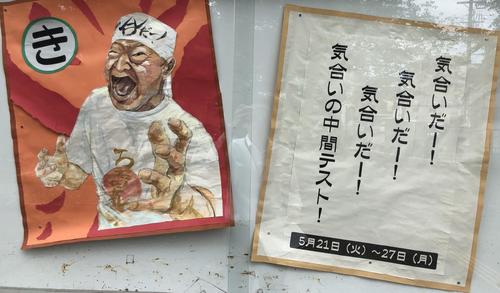 き
気合いだー!
気合いだー!
気合いだー!
気合いの中間テスト!
5月21日(火)~27日(月)